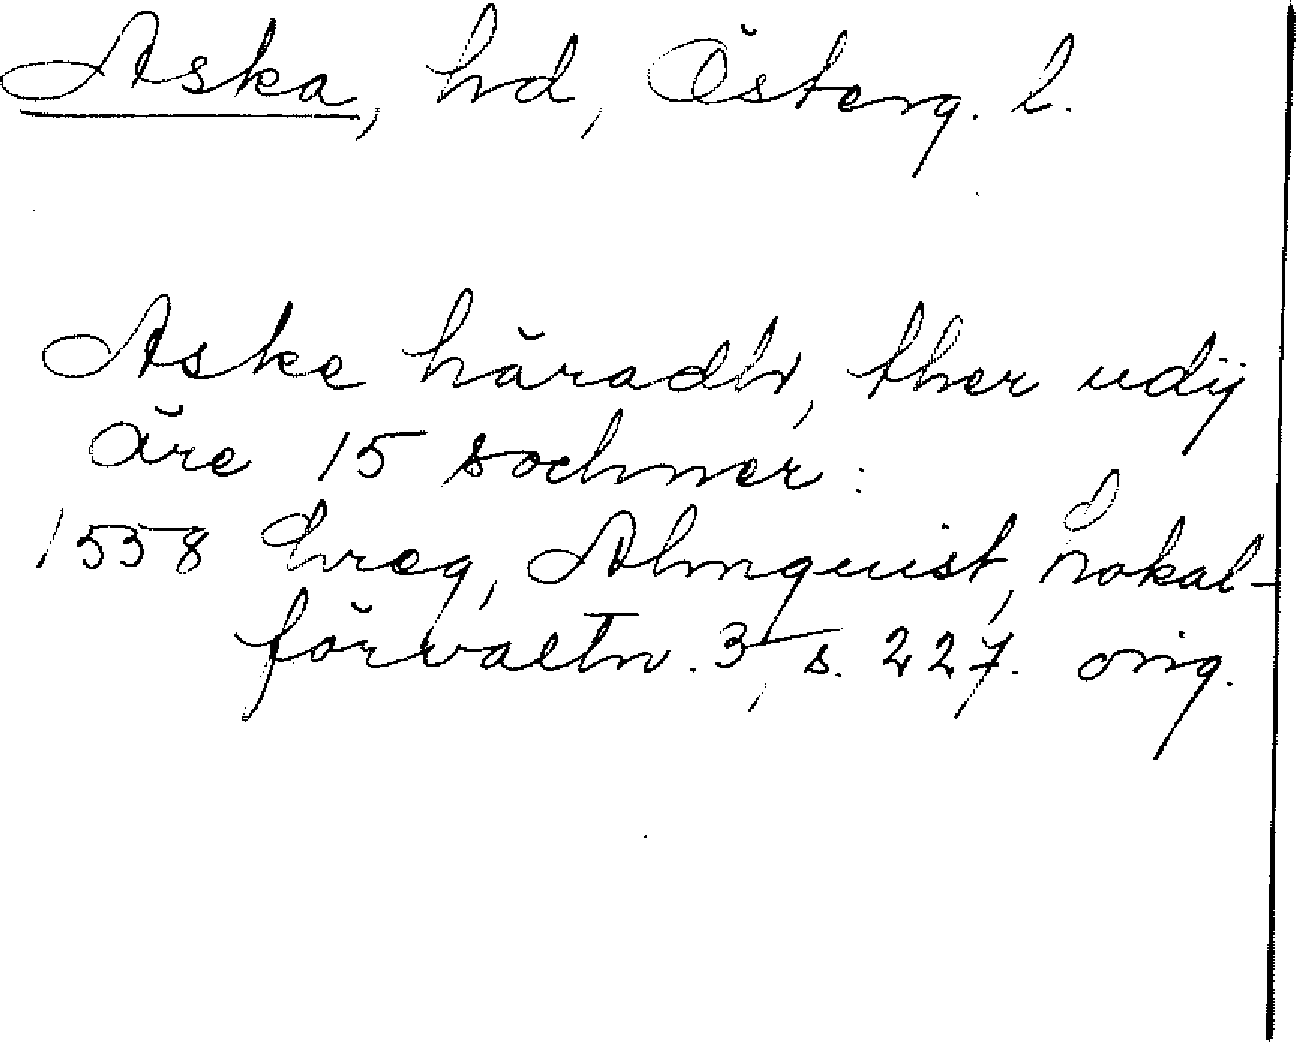 Aska, hd, Österg. l.
Aske häradh, ther udij
äre 15 sochner:
1558 hreg, Almquist, Lokal-
förvaltn. 3, s. 227. orig.